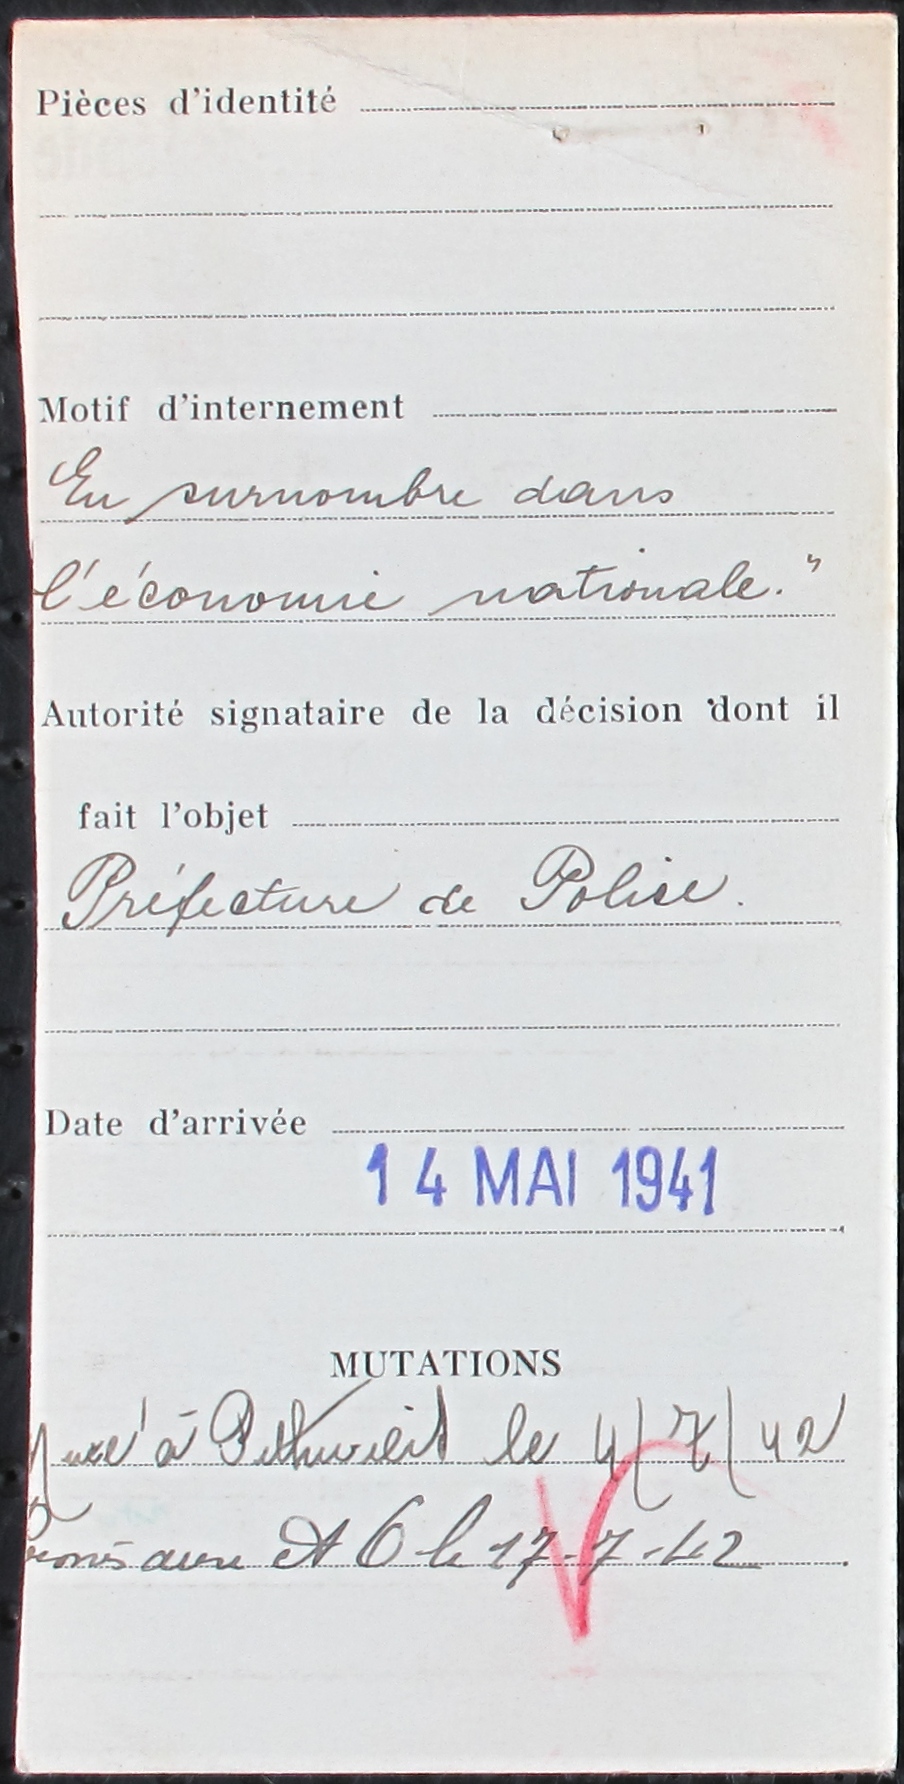 Pièces d'identité
Motif d'internement
En surnombre dans
l'économie nationale."
Autorité signataire de la décision dont il
fait l'objet
Préfecture de Police.
Date d'arrivée
14 MAI 1941
MUTATIONS
à Pithiviers le 4/7/42
6 le 17-7-42